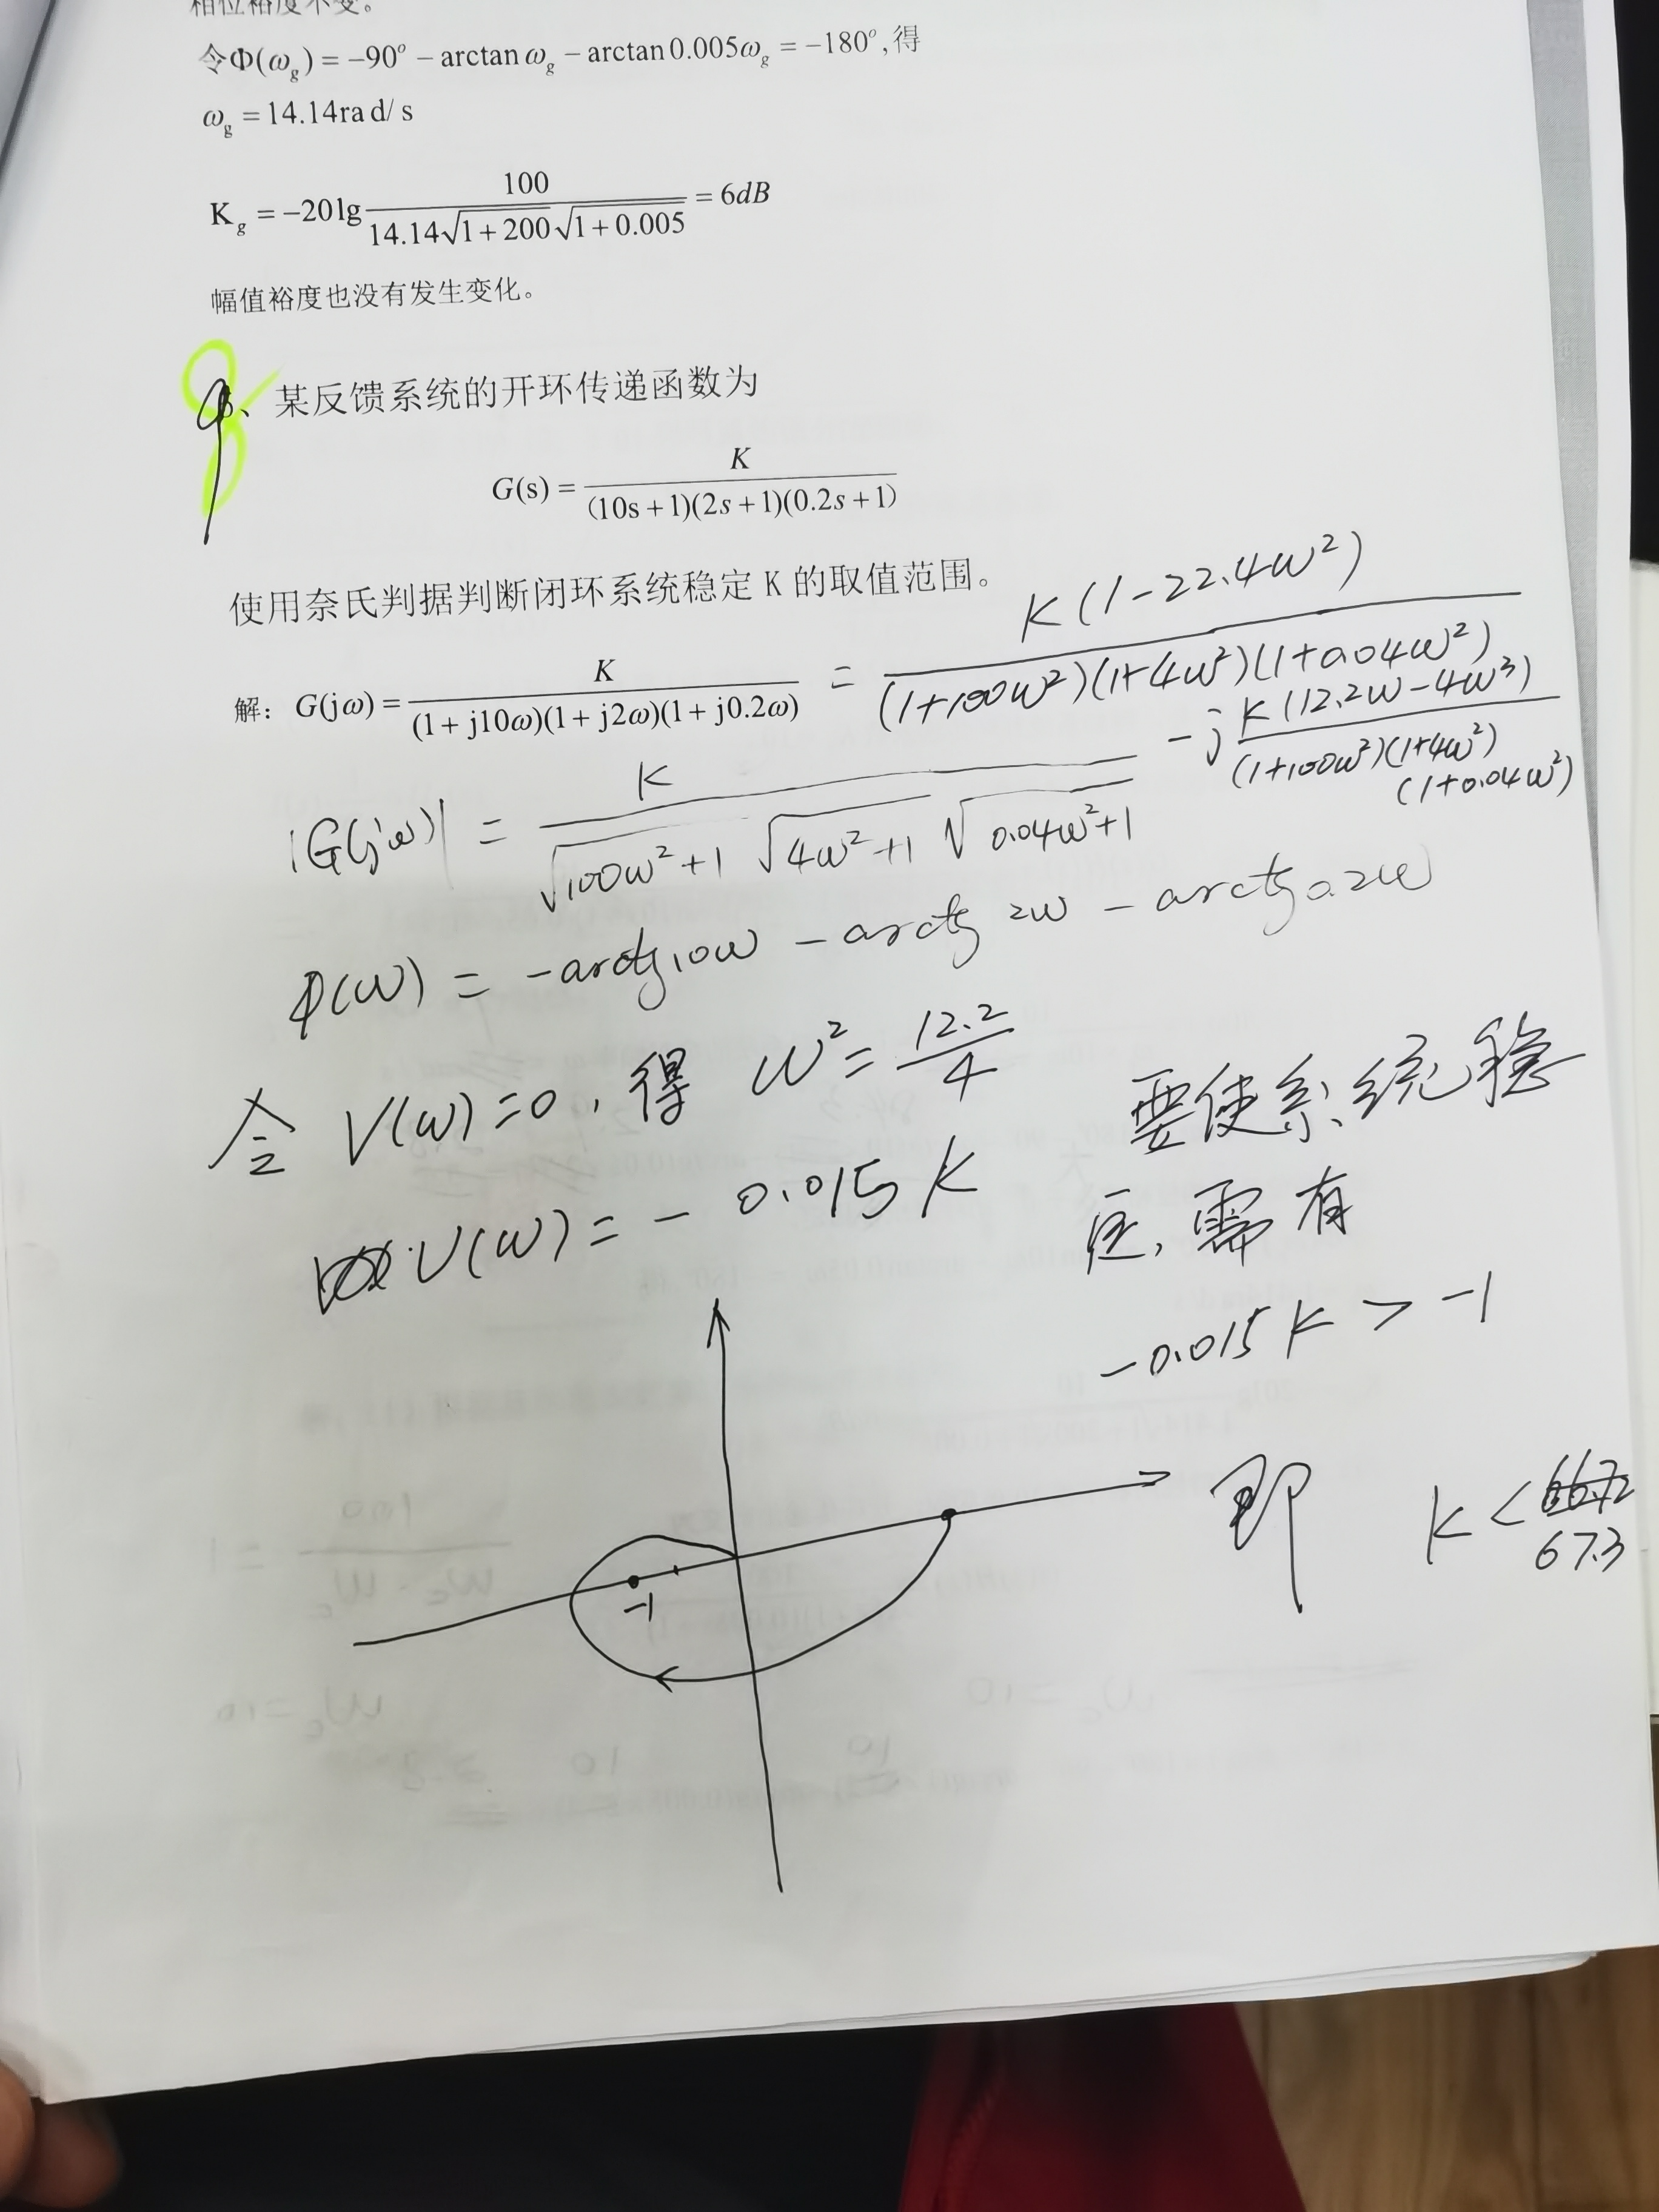 相位裕度不变。
令Φ(ω_g) = −90° − arctan ω_g − arctan 0.005ω_g = −180°, 得
ω_g = 14.14ra d/ s
K_g = −20lg 100 / (14.14√(1+200) √(1+0.005)) = 6dB
幅值裕度也没有发生变化。
、某反馈系统的开环传递函数为
G(s) = K / ((10s+1)(2s+1)(0.2s+1))
使用奈氏判据判断闭环系统稳定 K 的取值范围。
解: G(jω) = K / ((1+j10ω)(1+j2ω)(1+j0.2ω)) = K(1-22.4ω²) / ((1+100ω²)(1+4ω²)(1+0.04ω²))
-j K(12.2ω-4ω³) / ((1+100ω²)(1+4ω²)(1+0.04ω²))
|G(jω)| = K / (√(100ω²+1) √(4ω²+1) √(0.04ω²+1))
φ(ω) = -arctg10ω - arctg2ω - arctg0.2ω
令 V(ω)=0, 得 ω² = 12.2/4
U(ω) = - 0.015K
要使系统稳
定, 需有
-0.015K > -1
即 K < 67.3
-1